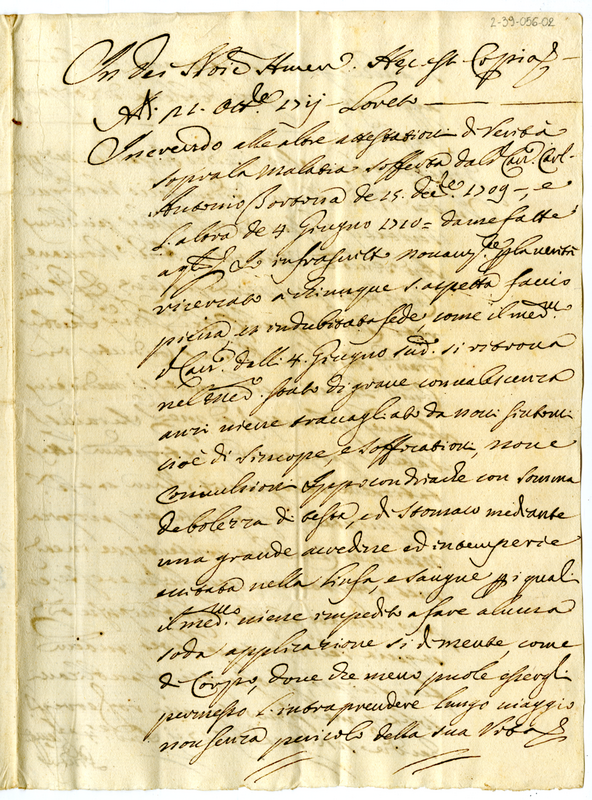 2-39-056-02
In Dei Noīe Amen. Hęc est Copia
A dì 21. Ottre 1711 Loreto
Inerendo alle altre attestationi di verità
sopra la malatia sofferta dal Cavr. Carl'
Antonio de 15. Decre. 1709, e
l'altra de 4. Giugno 1710 = da me fatte
Io infrascritto per la verità
ricercato à chiunque s'aspetta faccio
piena, et indubitata fede, come il medmo.
Cavr. dalli 4. Giugno sudo. si ritrova
nel medo. stato di grave convalescenza
anzi viene travagliato da novi sintomi
cioè di sincope, e soffocationi, non e
convulsioni Ippocondriache con somma
debolezza di testa, e di stomaco mediante
una grande acredine ed intemperie
entrata nella linfa, e sangue p i quali
il medmo. viene impedito a fare alcuna
soda applicazione sì di mente, come
di Corpo, dove che meno puole essergli
permesso l'intraprendere lungo viaggio
non senza pericolo della sua Vita